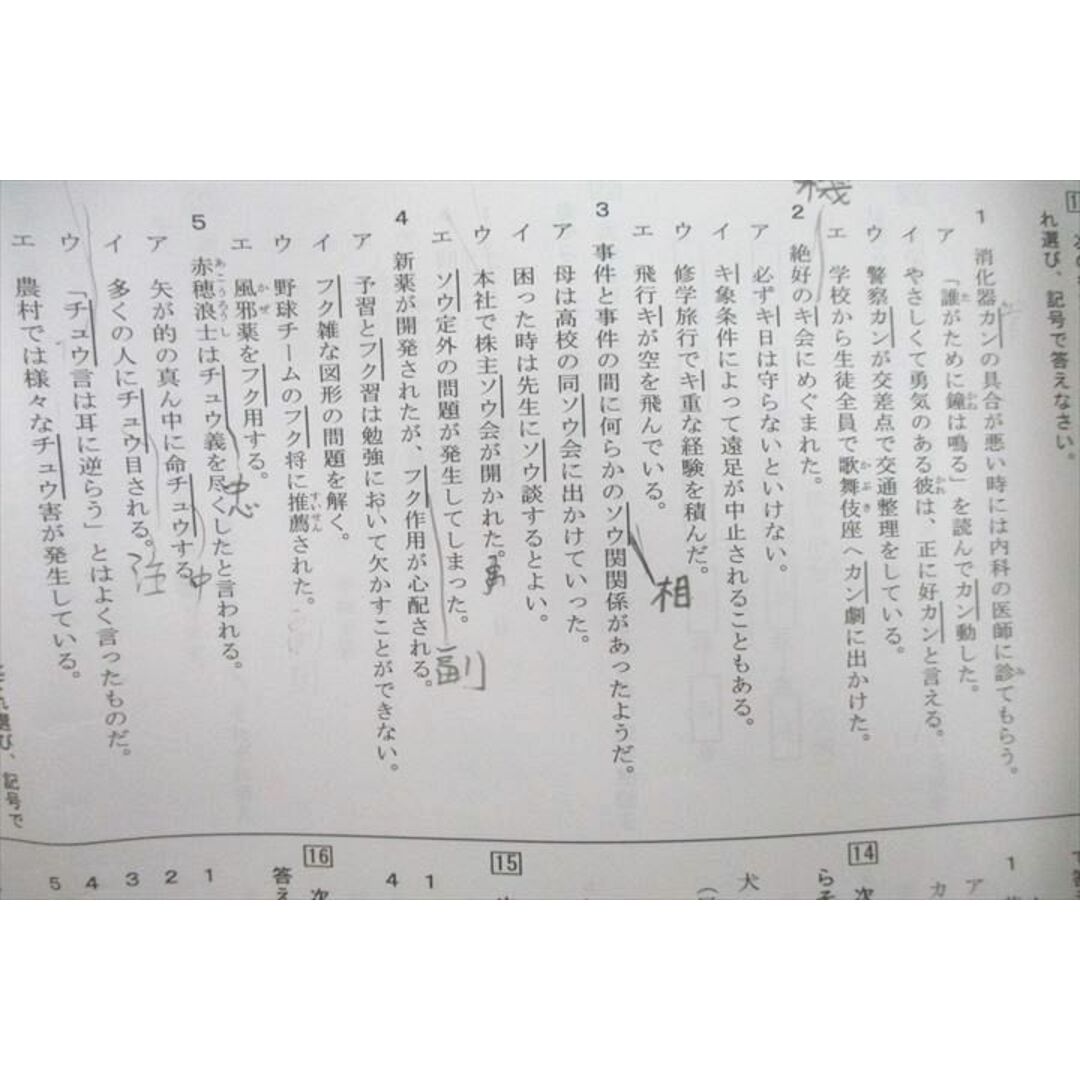 れ選び、記号で答えなさい。
1 消化器カンの具合が悪い時には内科の医師に診てもらう。
ア 「誰がために鐘は鳴る」を読んでカン動した。
イ やさしくて勇気のある彼は、正に好カンと言える。
ウ 警察カンが交差点で交通整理をしている。
エ 学校から生徒全員で歌舞伎座へカン劇に出かけた。
機
2 絶好のキ会にめぐまれた。
ア 必ずキ日は守らないといけない。
イ キ象条件によって遠足が中止されることもある。
ウ 修学旅行でキ重な経験を積んだ。
エ 飛行キが空を飛んでいる。
相
3 事件と事件の間に何らかのソウ関関係があったようだ。
ア 母は高校の同ソウ会に出かけていった。
イ 困った時は先生にソウ談するとよい。
ウ 本社で株主ソウ会が開かれた。
エ ソウ定外の問題が発生してしまった。
副
4 新薬が開発されたが、フク作用が心配される。
ア 予習とフク習は勉強において欠かすことができない。
イ フク雑な図形の問題を解く。
ウ 野球チームのフク将に推薦された。
エ 風邪薬をフク用する。
忠
5 赤穂浪士はチュウ義を尽くしたと言われる。
ア 矢が的の真ん中に命チュウする。
中
イ 多くの人にチュウ目される。
注
ウ 「チュウ言は耳に逆らう」とはよく言ったものだ。
エ 農村では様々なチュウ害が発生している。
選び、記号で
1
ア
カ
14
次
らそ
犬
15
1
4
16
次
答え
1
2
3
4
5